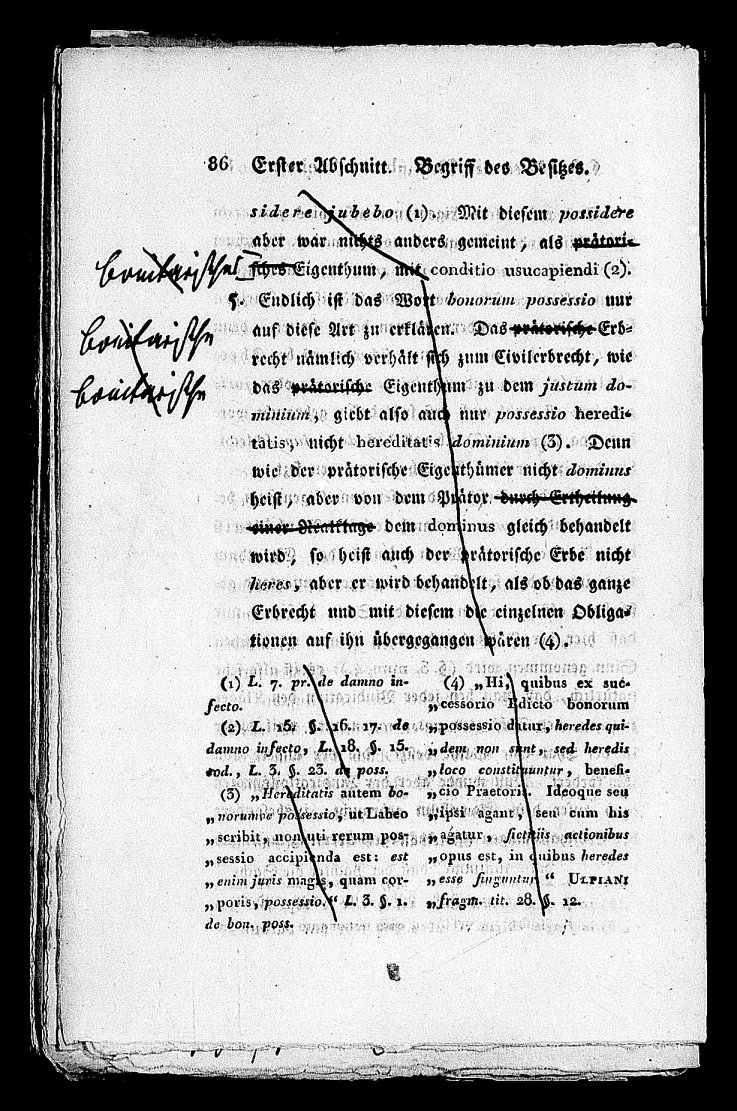 86 Erster Abschnitt. Begriff des Besitzes.
sidere jubebo (1). Mit diesem possidere
aber war nichts anders gemeint, als prätori-
bonitarisches
sches Eigenthum, mit conditio usucapiendi (2).
5. Endlich ist das Wort bonorum possessio nur
bonitarische
auf diese Art zu erklären. Das prätorische Erb-
recht nämlich verhält sich zum Civilerbrecht, wie
bonitarische
das prätorische Eigenthum zu dem justum do-
minium, giebt also auch nur possessio heredi-
tatis, nicht hereditatis dominium (3). Denn
wie der prätorische Eigenthümer nicht dominus
heist, aber von dem Prätor durch Ertheilung
einer Realklage dem dominus gleich behandelt
wird, so heist auch der prätorische Erbe nicht
heres, aber er wird behandelt, als ob das ganze
Erbrecht und mit diesem die einzelnen Obliga-
tionen auf ihn übergegangen wären (4).
(1) L. 7. pr. de damno in-
fecto.
(2) L. 15. §. 16. 17. de
damno infecto, L. 18. §. 15.
eod., L. 3. §. 23. de poss.
(3) „Hereditatis autem bo-
„norumve possessio, ut Labeo
„scribit, non uti rerum pos-
„sessio accipienda est: est
„enim juris magis, quam cor-
„poris, possessio.“ L. 3. §. 1.
de bon. poss.
(4) „Hi, quibus ex suc-
„cessorio Edicto bonorum
„possessio datur, heredes qui-
„dem non sunt, sed heredis
„loco constituuntur, benefi-
„cio Praetoris. Ideoque seu
„ipsi agant, seu cum his
„agatur, fictitiis actionibus
„opus est, in quibus heredes
„esse finguntur.“ ULPIANI
„fragm. tit. 28. §. 12.